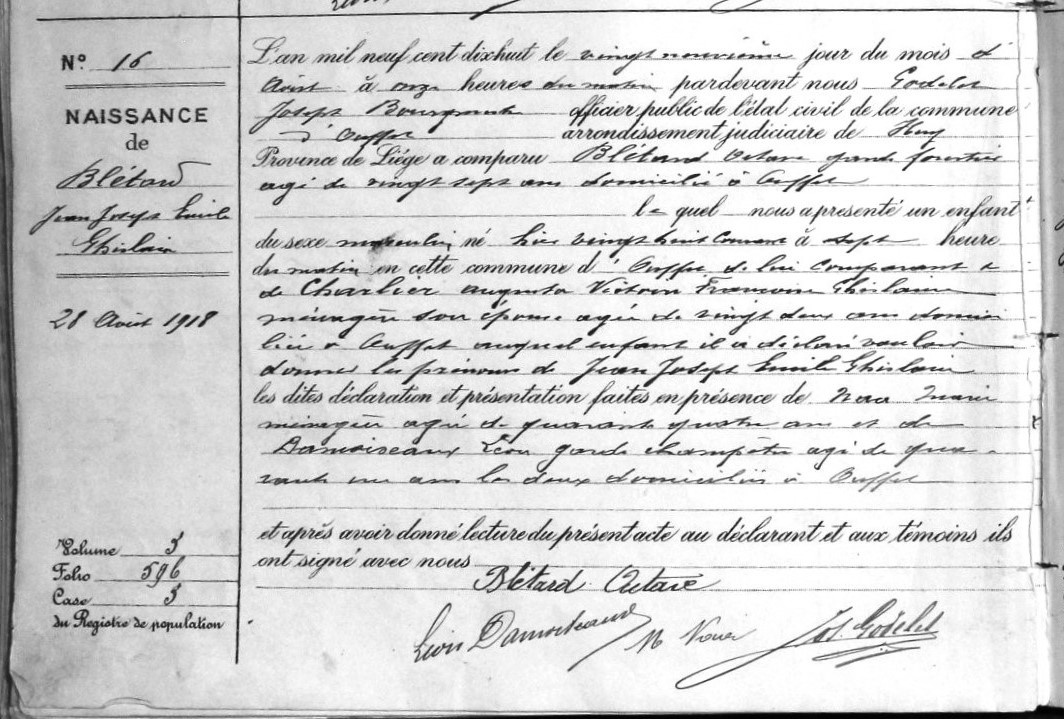 Nº 16
NAISSANCE
de
Blétard
Jean Joseph Emile
Ghislain
28 Août 1918
Volume 5
Folio 596
Case 5
du Registre de population
L'an mil neuf cent dixhuit le vingt neuvième jour du mois d'
Août à onze heures du matin pardevant nous Godelet
Joseph Bourgmestre officier public de l'état civil de la commune
d'Ouffet arrondissement judiciaire de Huy
Province de Liége a comparu Blétard Octave garde forestier
agé de vingt sept ans domicilié à Ouffet
lequel nous a présenté un enfant
du sexe masculin né hier vingt huit courant à sept heure
du matin en cette commune d'Ouffet de lui comparant &
de Charlier Augusta Victoire Françoise Ghislaine
ménagère son épouse agée de vingt deux ans domici
liée à Ouffet auquel enfant il a déclaré vouloir
donner les prénoms de Jean Joseph Emile Ghislain
les dites déclaration et présentation faites en présence de Marie
ménagère agée de quarante quatre ans et de
Damoiseaux Léon garde champêtre agé de qua-
rante un ans les deux domiciliés à Ouffet
et après avoir donné lecture du présent acte au déclarant et aux témoins ils
ont signé avec nous
Blétard Octave
Léon Damoiseaux M Jos. Godelet